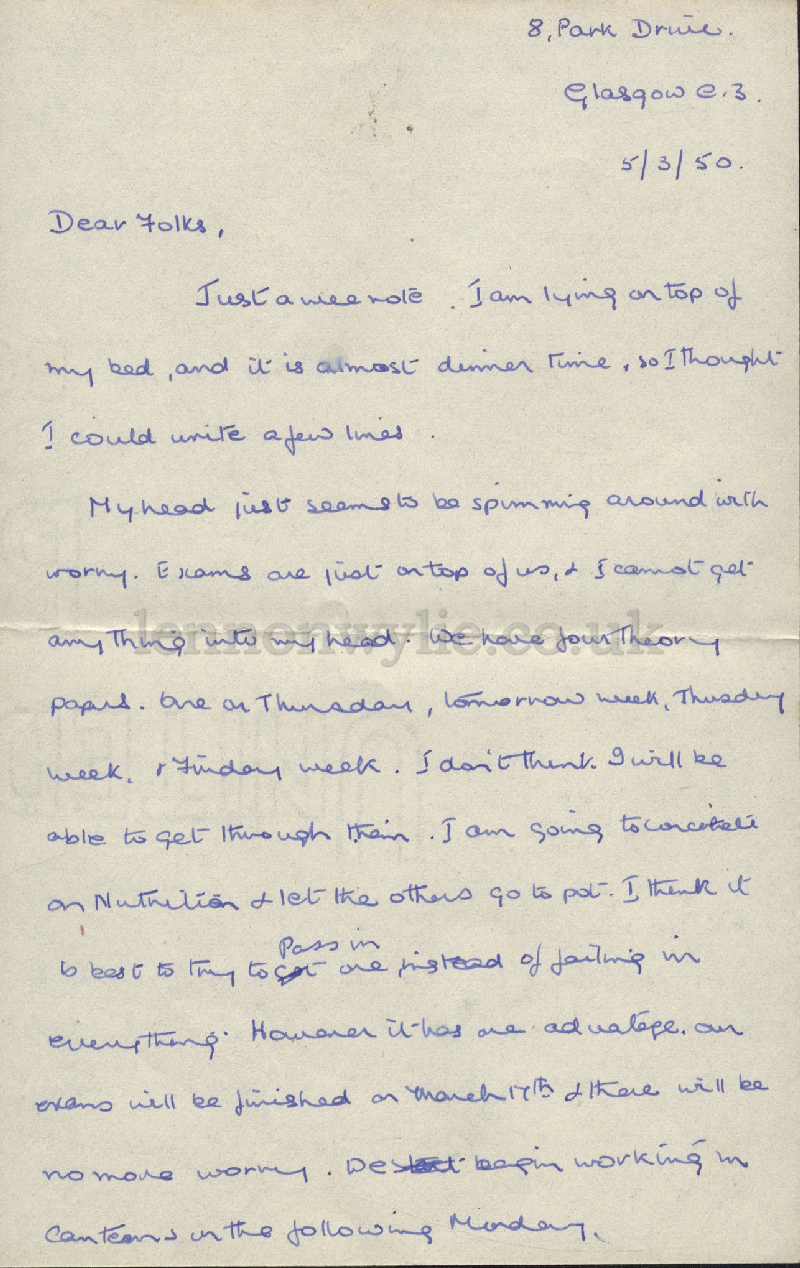 8, Park Drive.
Glasgow C.3.
5/3/50.
Dear Folks,
Just a wee note. I am lying on top of
my bed, and it is almost dinner time, so I thought
I could write a few lines.
My head just seems to be spinning around with
worry. Exams are just on top of us, & I cannot get
any thing into my head. We have four theory
lennonwylie.co.uk
papers. One on Thursday, tomorrow week, Thursday
week, & Friday week. I don't think I will be
able to get through them. I am going to
on Nutrition & let the others go to pot. I think it
is best to try to Pass in one, instead of failing in
everything. However it has one advatége. our
exams will be finished on March 17th & there will be
no more worry. We begin working in
Canteens on the following Monday.